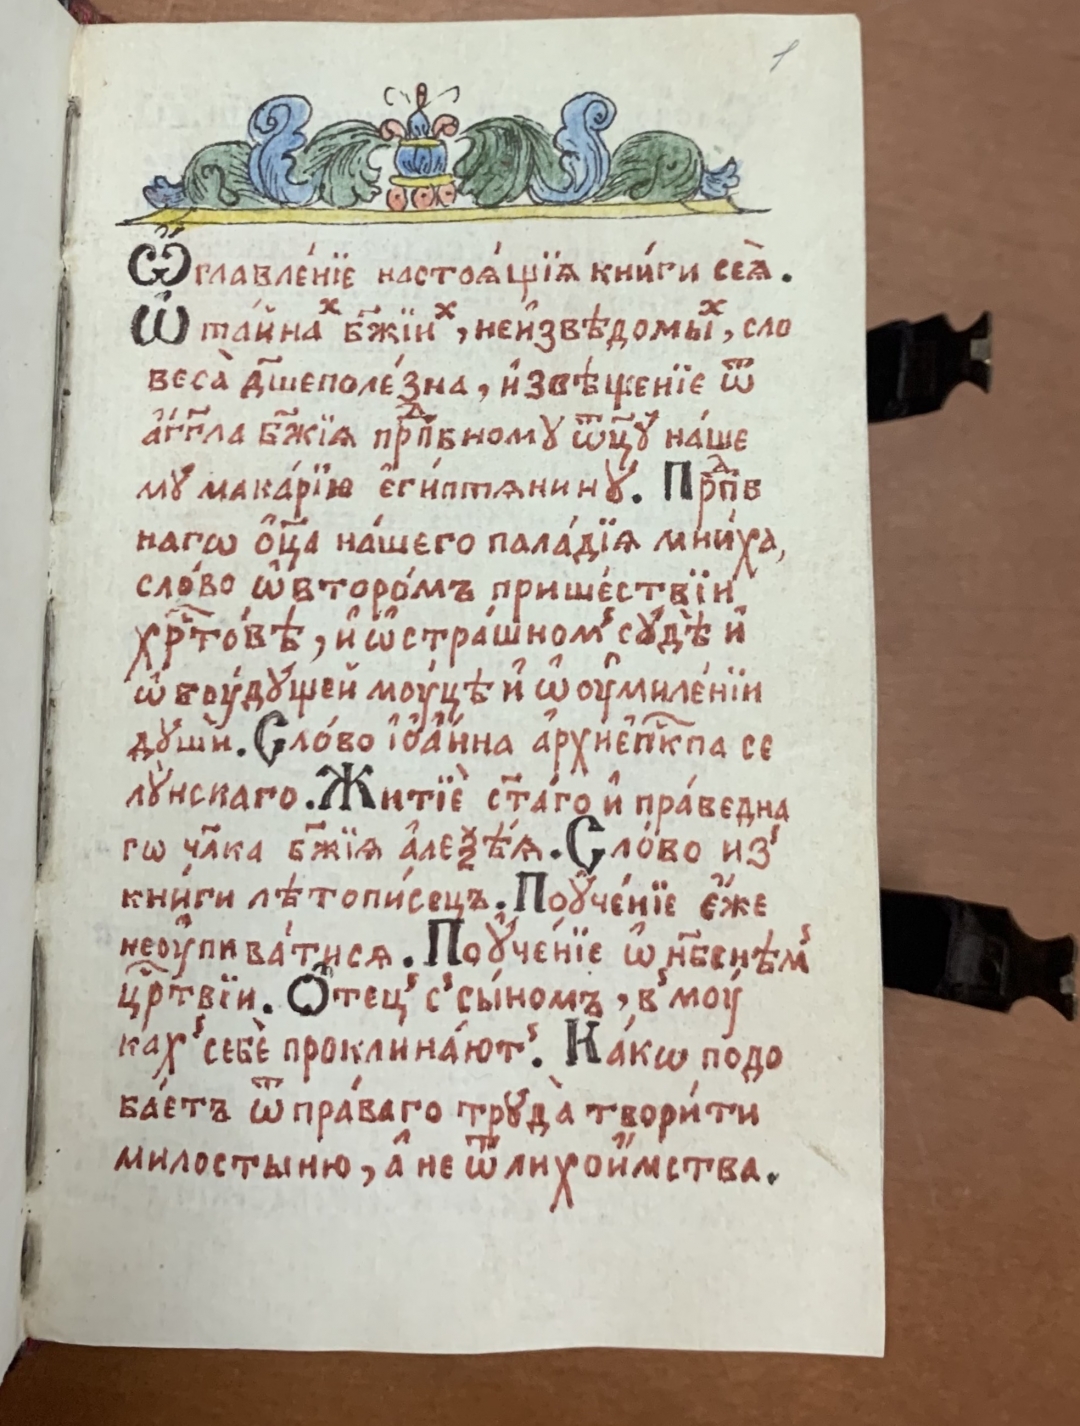 1
Ѡ҆главле́нїе настоѧ́щїѧ кни́ги сеѧ̀.
Ѡ҆ та́йнаⷯ бж҃їиⷯ, неи҆звѣ́домыⷯ, сло
веса̀ дш҃еполе́зна, и҆звѣще́нїе ѿ
а҆́гг҃ла бж҃їѧ прⷣп҃бному ѿц҃у̀ на́ше
мꙋ̀ мака́рїю є҆ги́птѧнинꙋ̀. Прⷣп҃б
нагѡ ѻ҆ц҃а на́шего пала́дїѧ мни́ха,
сло́во ѡ҆ второ́мъ прише́ствїи
хрⷭ҇то́вѣ, и҆ ѡ҆ стра́шномꙿ сꙋдѣ̀ и҆
ѡ҆ воу́дꙋщей моу́цѣ и҆ ѡ҆ оу҆миле́нїи
дꙋшѝ. Сло́во і҆ѡа́нна а҆рхїепⷭ҇кпа се
лꙋ́нскаго. Житїѐ ст҃а́го и҆ пра́ведна
гѡ чл҃ка бж҃їѧ а҆леѯѣ́ѧ. Сло́во изꙿ
кни́ги лѣтопи́сецъ. Поꙋче́нїе є҆́же
неоу҆пива́тисѧ. Поꙋче́нїе ѡ҆ нб҃снѣмꙿ
црⷭ҇твїи. Ѻ҆те́цꙿ сꙿ сы́номъ, вꙿ моу́
кахꙿ себѐ проклина́ютꙿ. Ка́кѡ подо
ба́етъ ѿ пра́ваго трꙋда̀ твори́ти
милостыню, а҆ не ѿ лихои҆́мства.